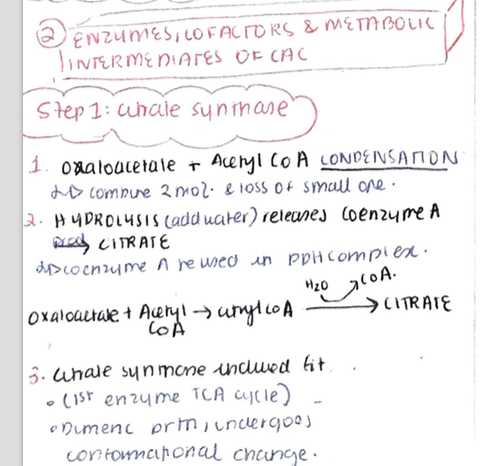 ② ENZYMES, COFACTORS & METABOLIC
INTERMEDIATES OF CAC
Step 1: citrate synthase
1. Oxaloacetate + Acetyl CoA CONDENSATION
↳ combine 2 mol. & loss of small one.
2. HYDROLYSIS (add water) releases Coenzyme A
→ CITRATE
↳ coenzyme A reused in PDH complex.
H₂O CoA.
Oxaloacetate + Acetyl CoA → citryl CoA → CITRATE
3. citrate synthase induced fit.
• (1st enzyme TCA cycle)
• Dimeric prtn, undergoes
conformational change.